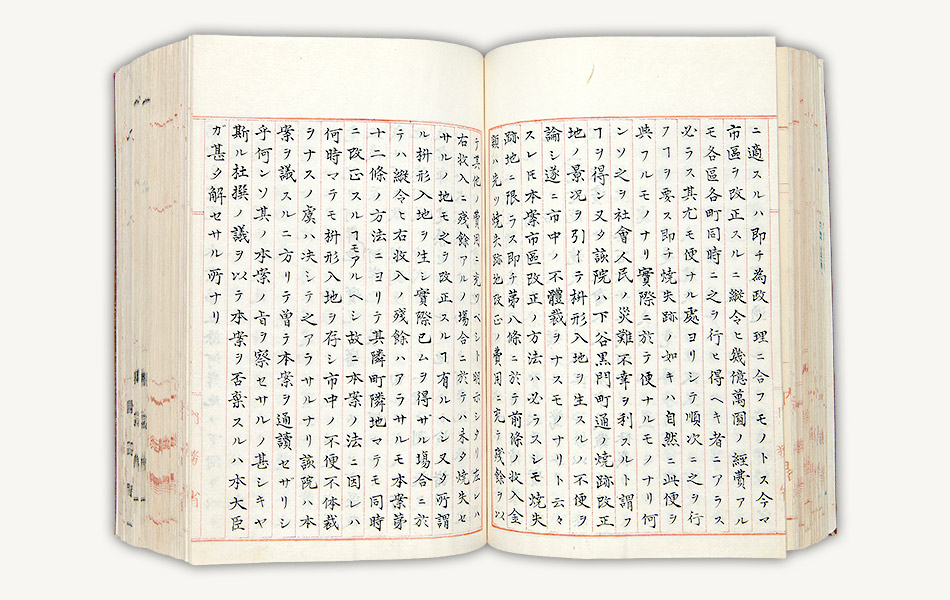 ニ適スルハ即チ為政ノ理ニ合フモノトス今マ
市區ヲ改正スルニ縱令ヒ幾億萬圓ノ經費アル
モ各區各町同時ニ之ヲ行ヒ得ヘキ者ニアラス
必ラス其尤モ便ナル處ヨリシテ順次ニ之ヲ行
フヿヲ要ス即チ燒失跡ノ如キハ自然ニ此便ヲ
與フルモノナリ實際ニ於テ便ナルモノナリ何
ンソ之ヲ社會人民ノ災難不幸ヲ利スルト謂フ
ヿヲ得ン又タ該院ハ下谷黒門町通ノ燒跡改正
地ノ景况ヲ引イテ枡形入地ヲ生スルノ不便ヲ
論シ遂ニ市中ノ不體裁ヲナスモノナリト云々
スレ𪜈本案市區改正ノ方法ハ必ラスシモ燒失
跡地ニ限ラス即チ第八條ニ於テ前條ノ收入金
額ハ先ツ燒失跡地改正ノ費用ニ充テ殘餘ヲ以
テ其他ノ費用ニ充ツヘシト明示シタリ左レハ
右收入ニ殘餘アルノ場合ニ於テハ未タ燒失セ
サルノ地モ之ヲ改正スルヿ有ルヘシ又タ所謂
ル枡形入地ヲ生シ實際已ムヲ得ザル場合ニ於
テハ縱令ヒ右收入ノ殘餘ハアラサルモ本案第
十二條ノ方法ニヨリテ其隣町隣地マテモ同時
ニ改正スルヿモアルヘシ故ニ本案ノ法ニ因レハ
何時マテモ枡形入地ヲ存シ市中ノ不便不体裁
ヲナスノ虞ハ决シテ之アラサルナリ該院ハ本
案ヲ議スルニ方リテ曽テ本案ヲ通讀セザリシ
乎何ンソ其ノ本案ノ旨ヲ察セサルノ甚シキヤ
斯ル杜撰ノ議ヲ以テ本案ヲ否棄スルハ本大臣
ガ甚タ解セサル所ナリ